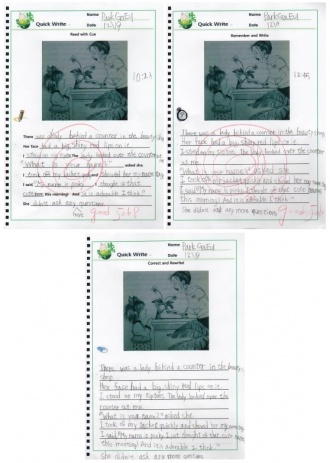 Quick Write
Name Park Ga Ed
Date 12/9
Read with Cue
10:23
There was a lady behind a counter in the beauty shop.
Her face had a big shiny red lips on it.
I stood on my The lady looked over the counter
"What is your name?" asked she.
I took off my jacket and showed her my name
I said My name is I thought of this
cute this morning! And is adorable I think."
She didn't ask any more questions.
have
good Job!
Quick Write
Name Park Ga Ed
Date 12/9
Remember and Write
There was a lady behind a counter in the beauty shop.
Her face had a big shiny red lips on it.
I stood on my tiptoes. The lady looked over the counter
at me.
"What is your name?" asked she.
I took off my jacket and showed her my
I said "My name is I thought of this cute
this morning! And is adorable I think."
She didn't ask any more questions.
good Job
Quick Write
Name Park Ga Ed
Date 12/9
Correct and Rewrite!
There was a lady behind a counter in the beauty
shop.
Her face had a big shiny red lips on it.
I stood on my tiptoes. The lady looked over the
counter at me.
"What is your name?" asked she.
I took off my jacket quickly and showed her my
I said "My name is I just thought of this cute
this morning! And is adorable I think.
She didn't ask any more questions